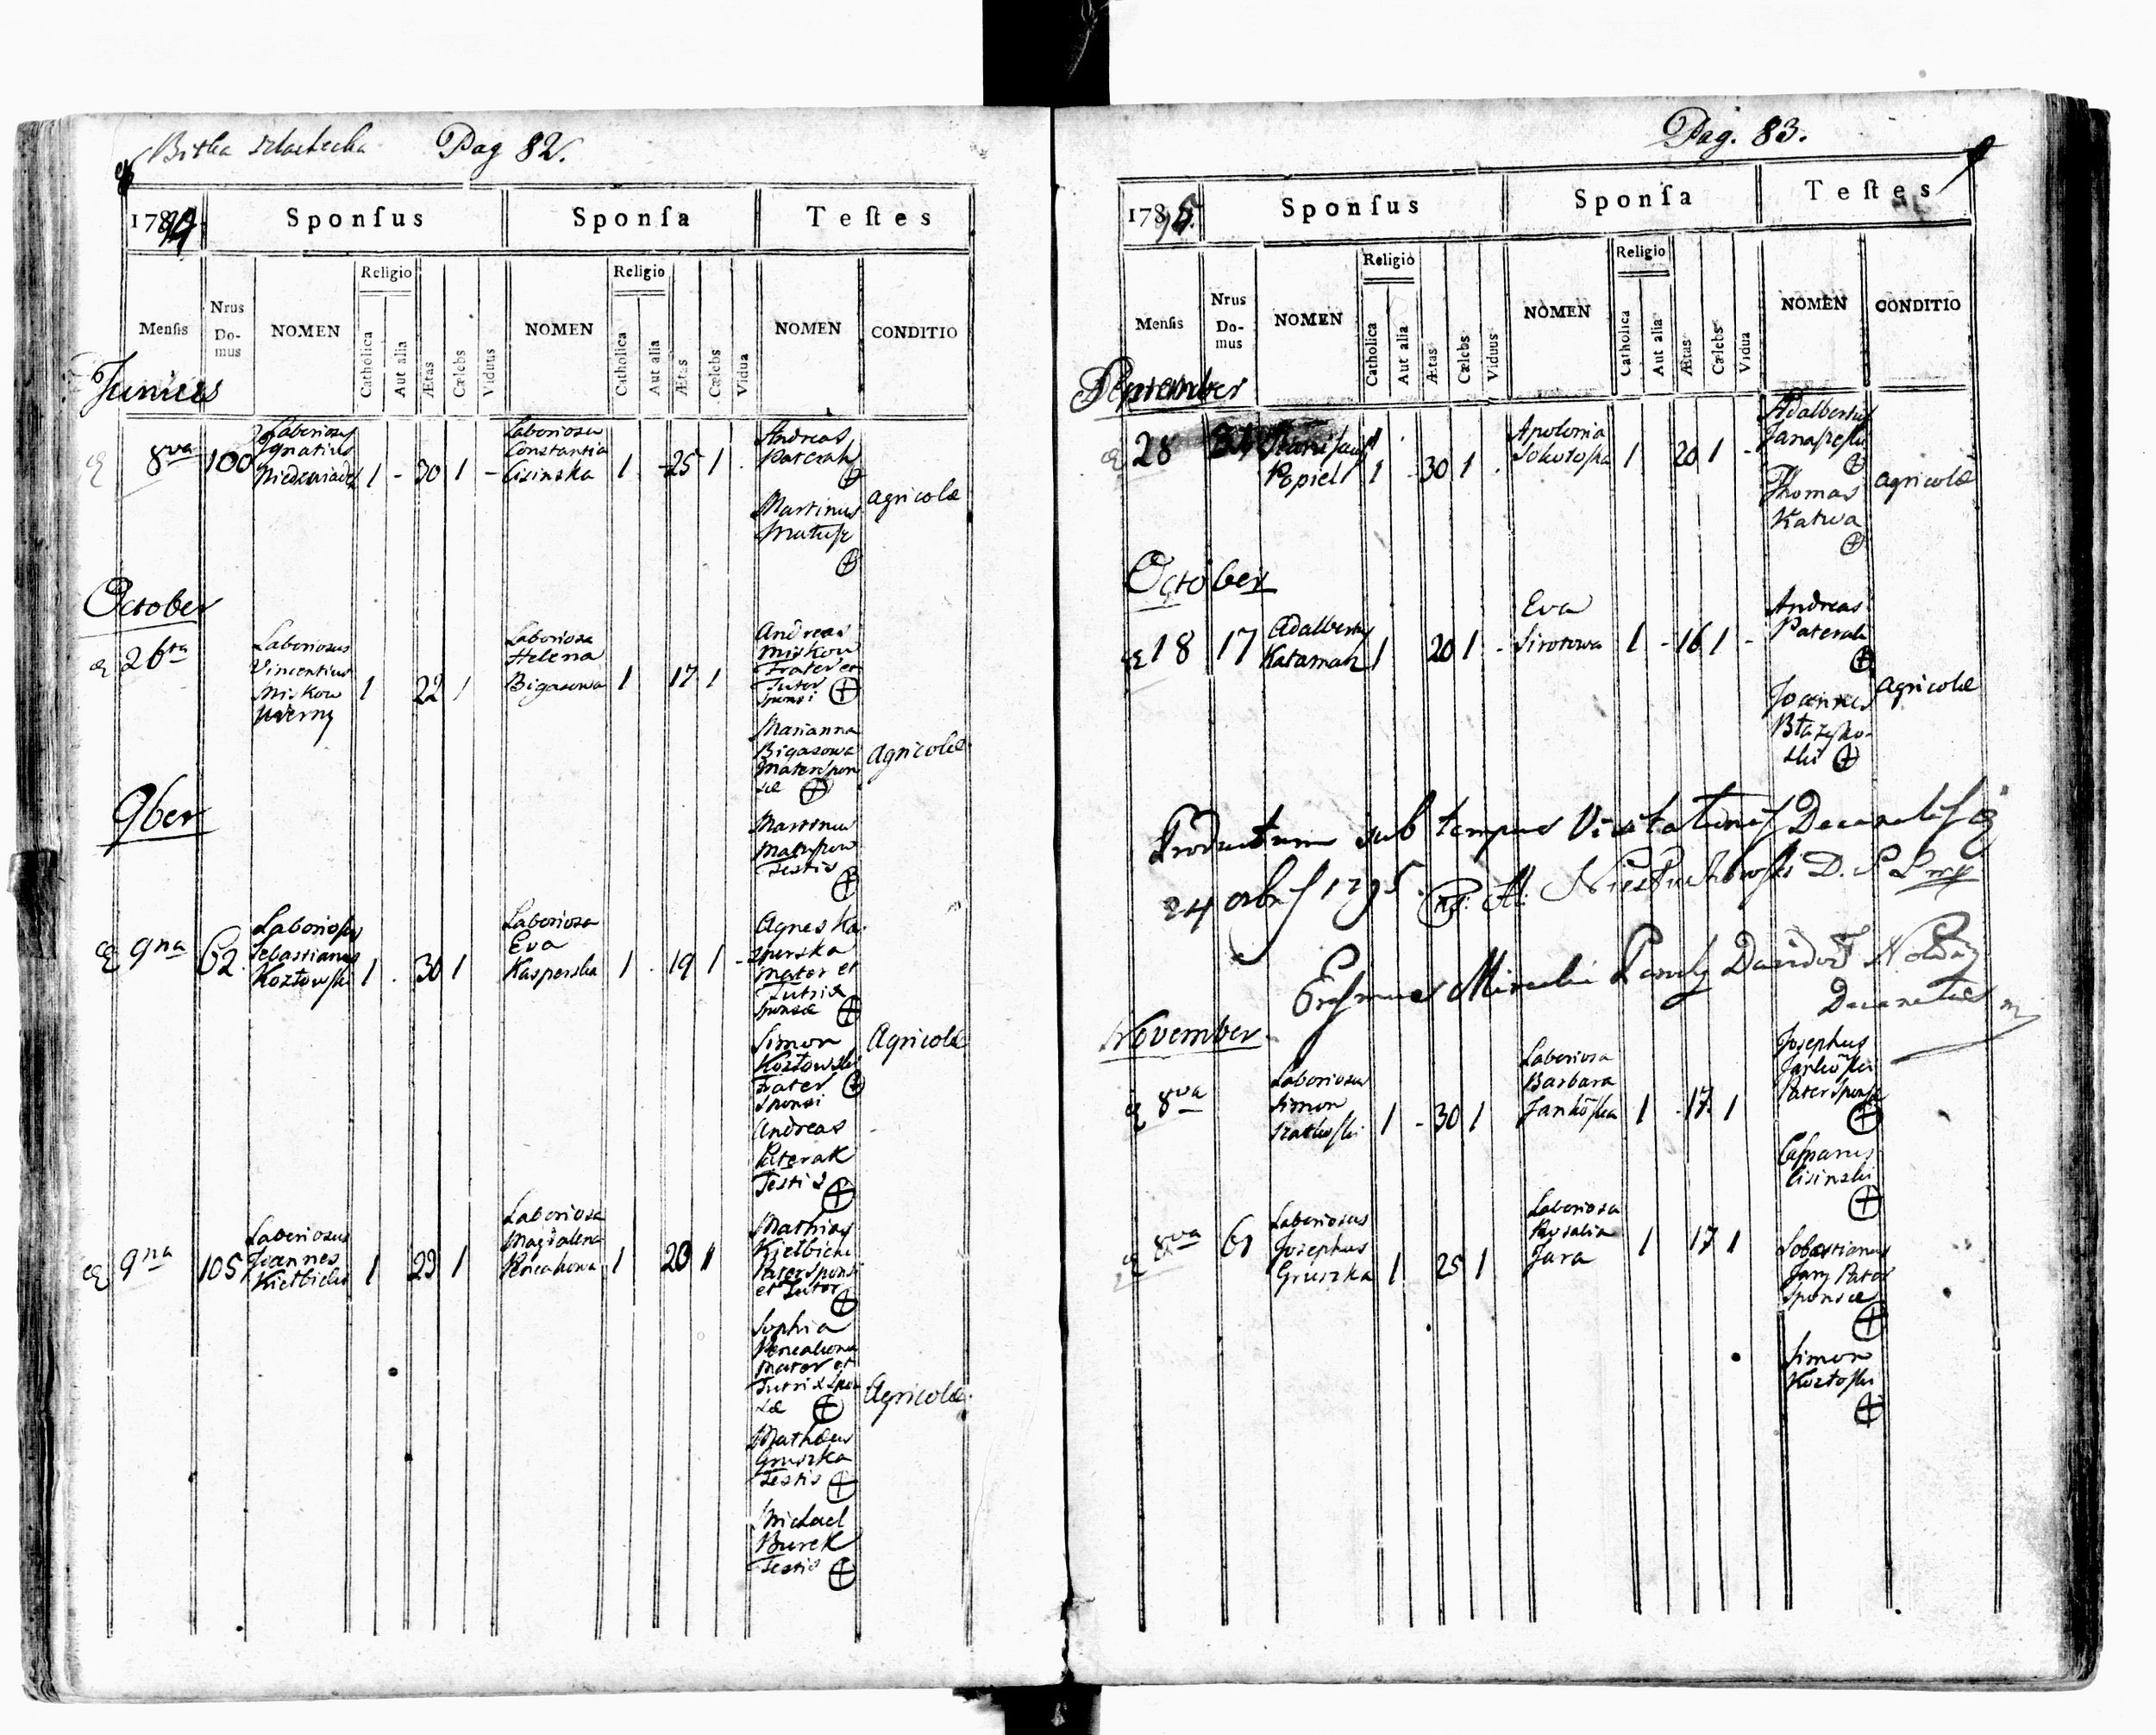 Pag 82.
1794
Sponſus
Sponſa
Teſtes
Mensis
Nrus
Do-
mus
NOMEN
Religio
Catholica
Aut alia
Ætas
Cælebs
Viduus
NOMEN
Religio
Catholica
Aut alia
Ætas
Cælebs
Vidua
NOMEN
CONDITIO
Junius
8va 100
Laboriosus
Ignatius
1 - 30 1 -
Laboriosa
Constantia
Cisinska 1 - 25 1
Andreas
Paterak
Martinus
agricolæ
October
26ta
Laboriosus
Vincentius
Miskow
1 22 1
Laboriosa
Helena
Bigasowa 1 17 1
Andreas
Miskow
Frater et
Tutor
Sponsi
Marianna
Bigasowa
Mater Spon
sæ
agricolæ
Martinus
Testis
9ber
9na 62
Laboriosus
Sebastianus
Kozłowski 1 . 30 1
Laboriosa
Eva
Kasperska 1 . 19 1 -
Agnes Ka-
sperska
Mater et
Tutrix
Sponsæ
Simon
Kozłowski
Frater
Sponsi
Agricolæ
Andreas
Paterak
Testis
9na 105
Laboriosus
Joannes
Kiełbicki 1 23 1
Laboriosa
Magdalena
Pencakowa 1 20 1
Mathias
Kiełbicki
Pater Sponsi
et Tutor
Sophia
Pencakowa
Mater et
Tutrix Spon
sæ
Agricolæ
Mathæus
Gruszka
Testis
Michael
Burek
Testis
Pag. 83.
1795.
Sponſus
Sponſa
Teſtes
Mensis
Nrus
Do-
mus
NOMEN
Religio
Catholica
Aut alia
Ætas
Cælebs
Viduus
NOMEN
Religio
Catholica
Aut alia
Ætas
Cælebs
Vidua
NOMEN
CONDITIO
September
28
Popiel 1 - 30 1
Apolonia
1 20 1 -
Adalbertus
Thomas
Katwa
agricolæ
October
18 17
Adalbertus
1 20 1 -
Eva
Sirotowa 1 - 16 1 -
Andreas
Paterak
Joannes
Błażyko-
ski
agricolæ
Productum sub tempus Visitationis Decanalis
1795.
November
8va
Laboriosus
Simon
1 - 30 1
Laboriosa
Barbara
Jankoska 1 - 17 1
Josephus
Jankoski
Pater Sponsæ
Casparus
Cisinski
8va 61
Laboriosus
Josephus
Gruszka 1 25 1
Laboriosa
Rosalia
Jara 1 17 1
Sebastianus
Jary Pater
Sponsæ
Simon
Kozłoski